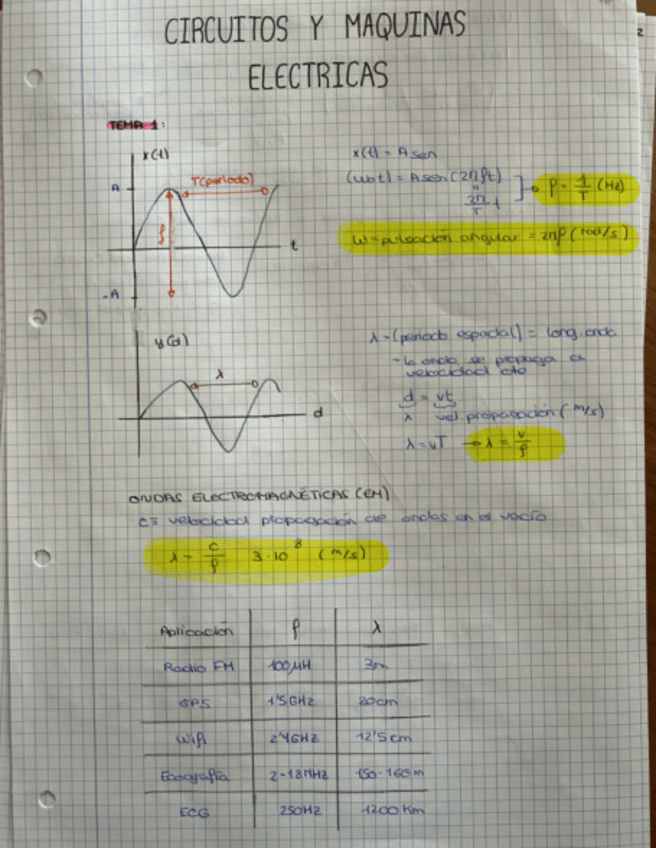 CIRCUITOS Y MAQUINAS
ELECTRICAS
TEMA 1:
x(t)
A
T(periodo)
t
-A
x(t) = A sen
(ω0t) = A sen (2πft)
"
2π/T t
f = 1/T (Hz)
ω = pulsación angular = 2πf (rad/s)
y(d)
λ
d
λ = (periodo espacial) = long. onda
- la onda se propaga a
velocidad cte
d = vt
λ vel. propagación (m/s)
λ = vT → λ = v/f
ONDAS ELECTROMAGNÉTICAS (EM)
c ≡ velocidad propagación de ondas en el vacío
λ = c/f 3·10⁸ (m/s)
Aplicación f λ
Radio FM 100MH 3m
GPS 1'5GHz 20cm
Wifi 2'4GHz 12'5cm
Ecografía 2-18MHz
ECG 250Hz 1200 Km